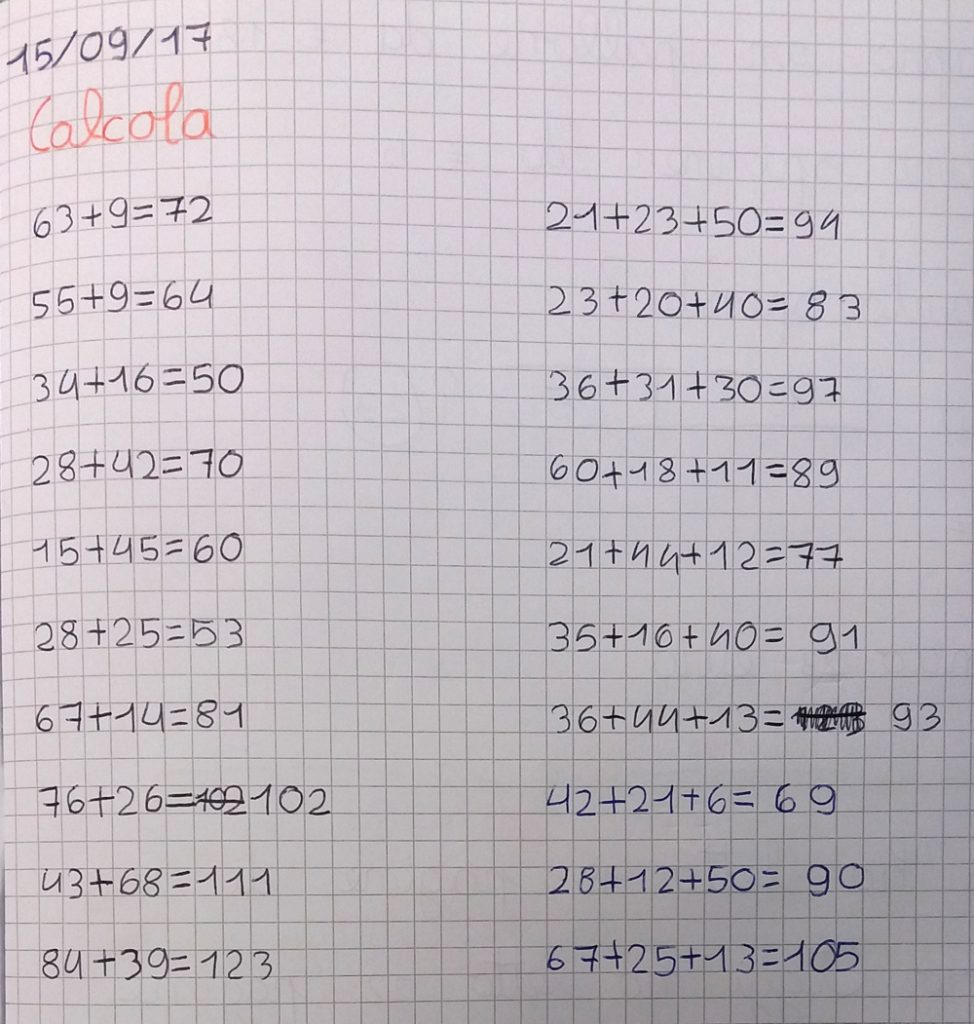 15/09/17
Calcola
63+9=72
55+9=64
34+16=50
28+42=70
15+45=60
28+25=53
67+14=81
76+26=102 102
43+68=111
84+39=123
21+23+50=94
23+20+40=83
36+31+30=97
60+18+11=89
21+44+12=77
35+16+40=91
36+44+13= 93
42+21+6=69
28+12+50=90
67+25+13=105